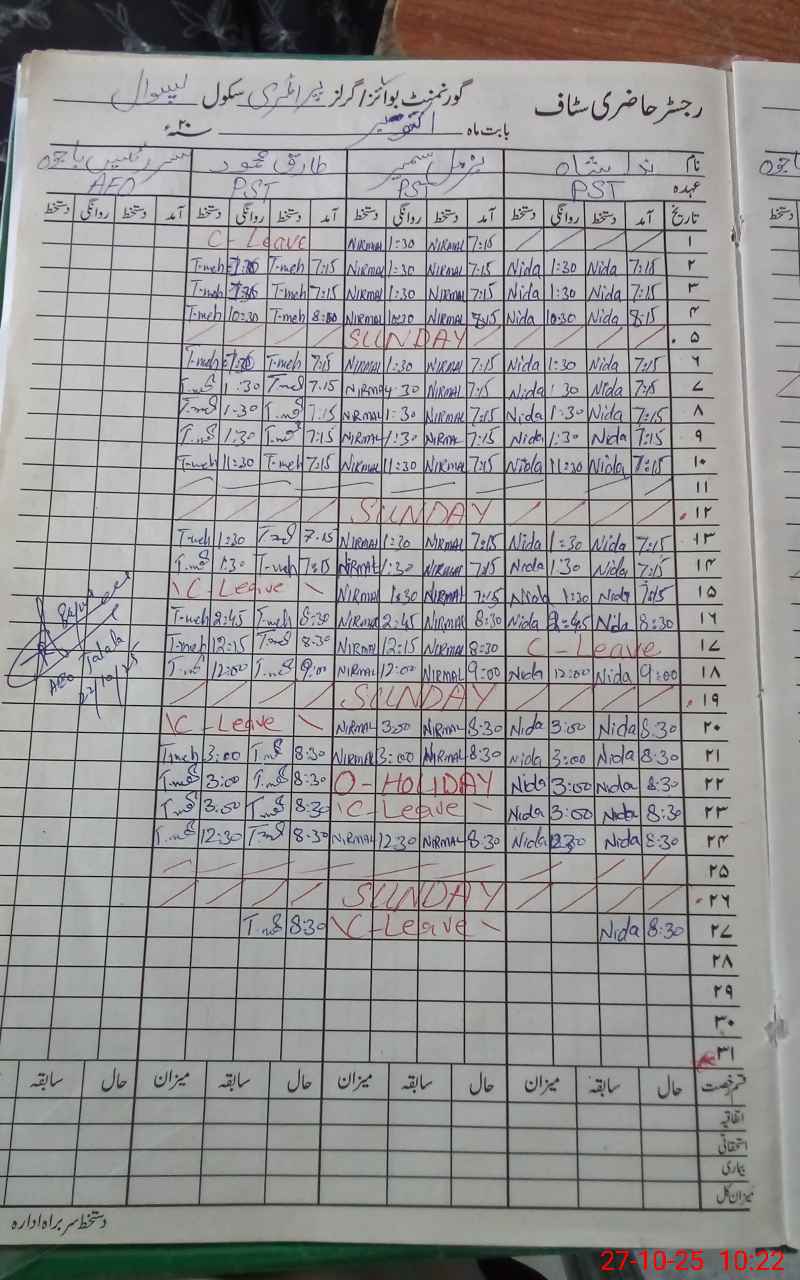 رجسٹر حاضری سٹاف گورنمنٹ بوائز/گرلز پرائمری سکول
بابت ماہ اکتوبر ۲۰ء
نام ندا شاہ طارق محمود
عہدہ PST PST PST AEO
تاریخ آمد دستخط روانگی دستخط آمد دستخط روانگی دستخط آمد دستخط روانگی دستخط آمد دستخط روانگی دستخط
۱ 7:15 NIRMAL 1:30 NIRMAL C-Leave
۲ 7:15 Nida 1:30 Nida 7:15 NIRMAL 1:30 NIRMAL 7:15 T-meh T-meh
۳ 7:15 Nida 1:30 Nida 7:15 NIRMAL 1:30 NIRMAL 7:15 T-meh T-meh
۴ 8:15 Nida 10:30 Nida 8:15 NIRMAL 10:30 NIRMAL 8:00 T-meh 10:30 T-meh
۵ SUNDAY
۶ 7:15 Nida 1:30 Nida 7:15 NIRMAL 1:30 NIRMAL 7:15 T-meh T-meh
۷ 7:15 Nida 1:30 Nida 7:15 NIRMAL NIRMAL 7:15 1:30
۸ 7:15 Nida 1:30 Nida 7:15 NIRMAL 1:30 NIRMAL 7:15 1:30
۹ 7:15 Nida 1:30 Nida 7:15 NIRMAL 1:30 NIRMAL 7:15 1:30
۱۰ 7:15 Nida 11:30 Nida 7:15 NIRMAL 11:30 NIRMAL 7:15 T-meh 11:30 T-meh
۱۱
۱۲ SUNDAY
۱۳ 7:15 Nida 1:30 Nida 7:15 NIRMAL 1:30 NIRMAL 7:15 1:30 T-meh
۱۴ 7:15 Nida 1:30 Nida 7:15 NIRMAL 1:30 NIRMAL 7:15 T-meh 1:30
۱۵ 7:15 Nida 1:30 Nida 7:15 NIRMAL 1:30 NIRMAL C-Leave
۱۶ 8:30 Nida 2:45 Nida 8:30 NIRMAL 2:45 NIRMAL 8:30 T-meh 2:45 T-meh
۱۷ C-Leave 8:30 NIRMAL 12:15 NIRMAL 8:30 12:15 T-meh
۱۸ 9:00 Nida 12:00 Nida 9:00 NIRMAL 12:00 NIRMAL 9:00 12:00
AEO Jalala
22/10/25
۱۹ SUNDAY
۲۰ 8:30 Nida 3:00 Nida 8:30 NIRMAL 3:00 NIRMAL C-Leave
۲۱ 8:30 Nida 3:00 Nida 8:30 NIRMAL 3:00 NIRMAL 8:30 3:00 T-meh
۲۲ 8:30 Nida 3:00 Nida O-HOLIDAY 8:30 3:00
۲۳ 8:30 Nida 3:00 Nida C-Leave 8:30 3:00
۲۴ 8:30 Nida 12:30 Nida 8:30 NIRMAL 12:30 NIRMAL 8:30 12:30
۲۵
۲۶ SUNDAY
۲۷ 8:30 Nida C-Leave 8:30
۲۸
۲۹
۳۰
۳۱
قسم رخصت حال سابقہ میزان حال سابقہ میزان حال سابقہ میزان حال سابقہ
اتفاقیہ
استحقاقی
بیماری
میزان کل
دستخط سربراہ ادارہ
27-10-25 10:22